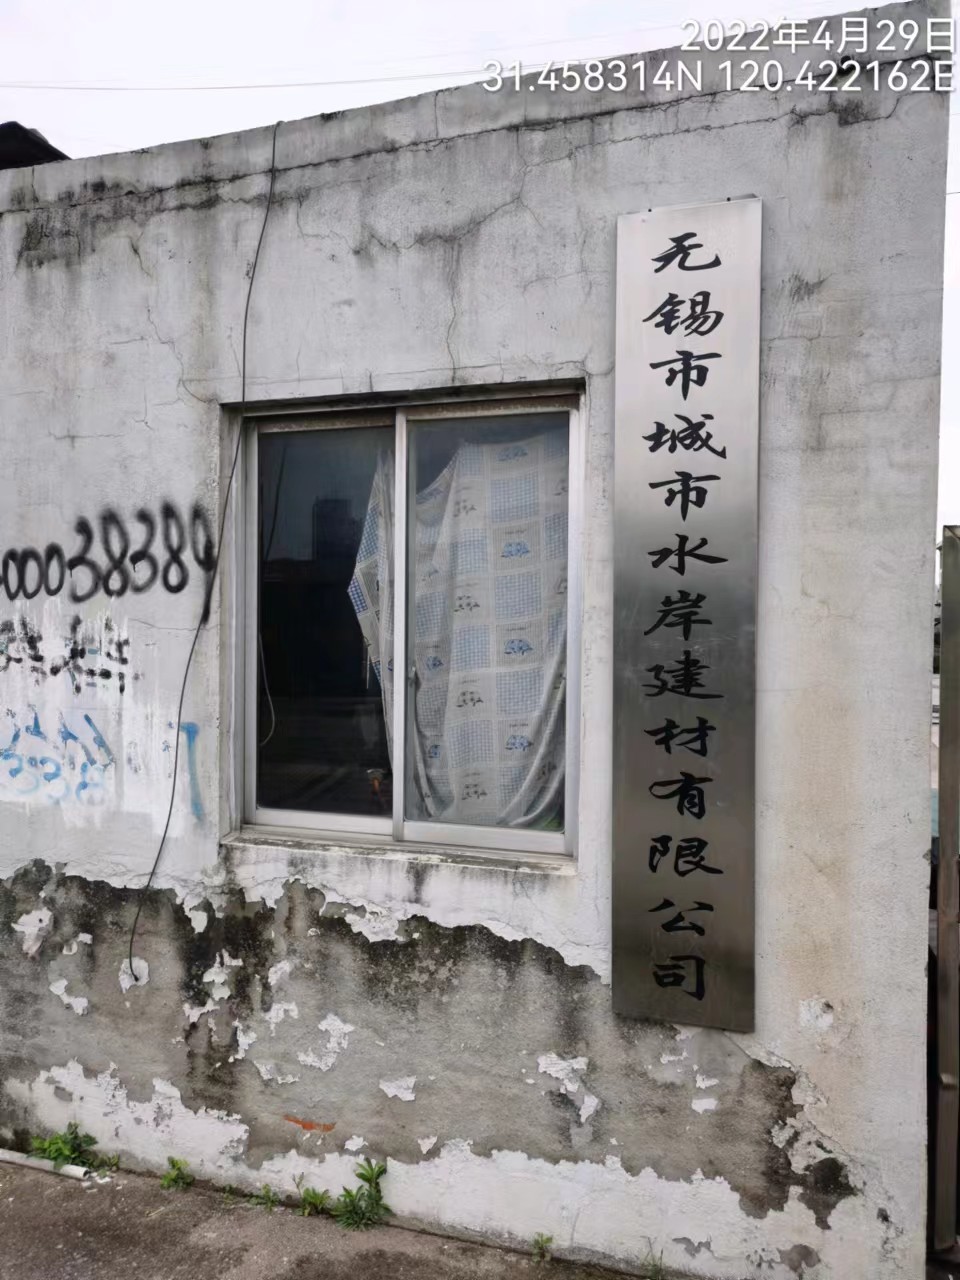 2022年4月29日
31.458314N 120.422162E
无锡市城市水岸建材有限公司
00038389